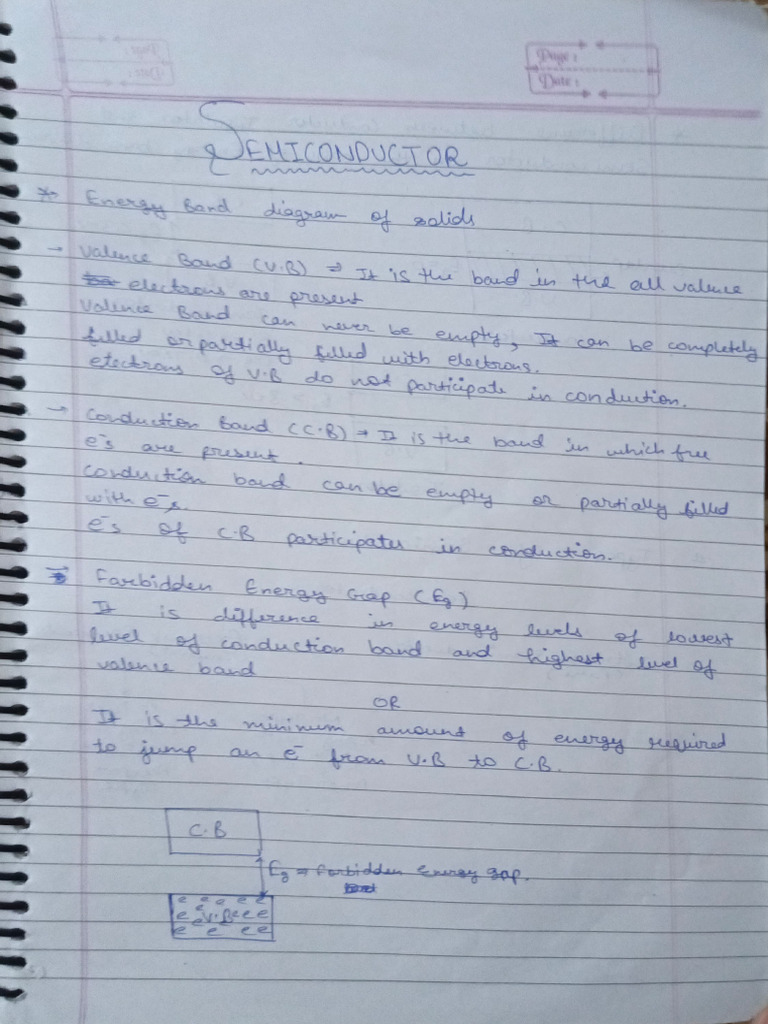 Page :
Date :
SEMICONDUCTOR
* Energy Band diagram of solids
→ Valence Band (V.B) ⇒ It is the band in the all valence
electrons are present
Valence Band can never be empty, It can be completely
filled or partially filled with electrons.
electrons of V.B do not participate in conduction.
→ Conduction Band (C.B) → It is the band in which free
e⁻s are present.
Conduction band can be empty or partially filled
with e⁻s.
e⁻s of C.B participates in conduction.
→ Farbidden Energy Gap (Eg)
It is difference in energy levels of lowest
level of conduction band and highest level of
valence band
OR
It is the minimum amount of energy required
to jump an e⁻ from V.B to C.B.
C.B
Eg → Forbidden Energy gap.
e e e e e
e e V.B e e e
e e e e e